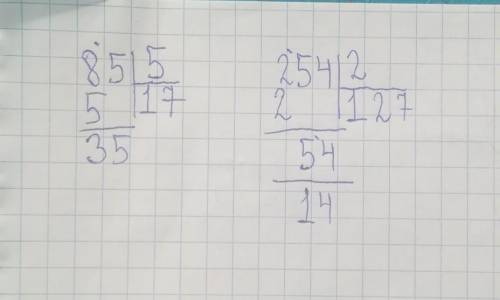 85 | 5
5 | 17
35
254 | 2
2 | 127
54
14